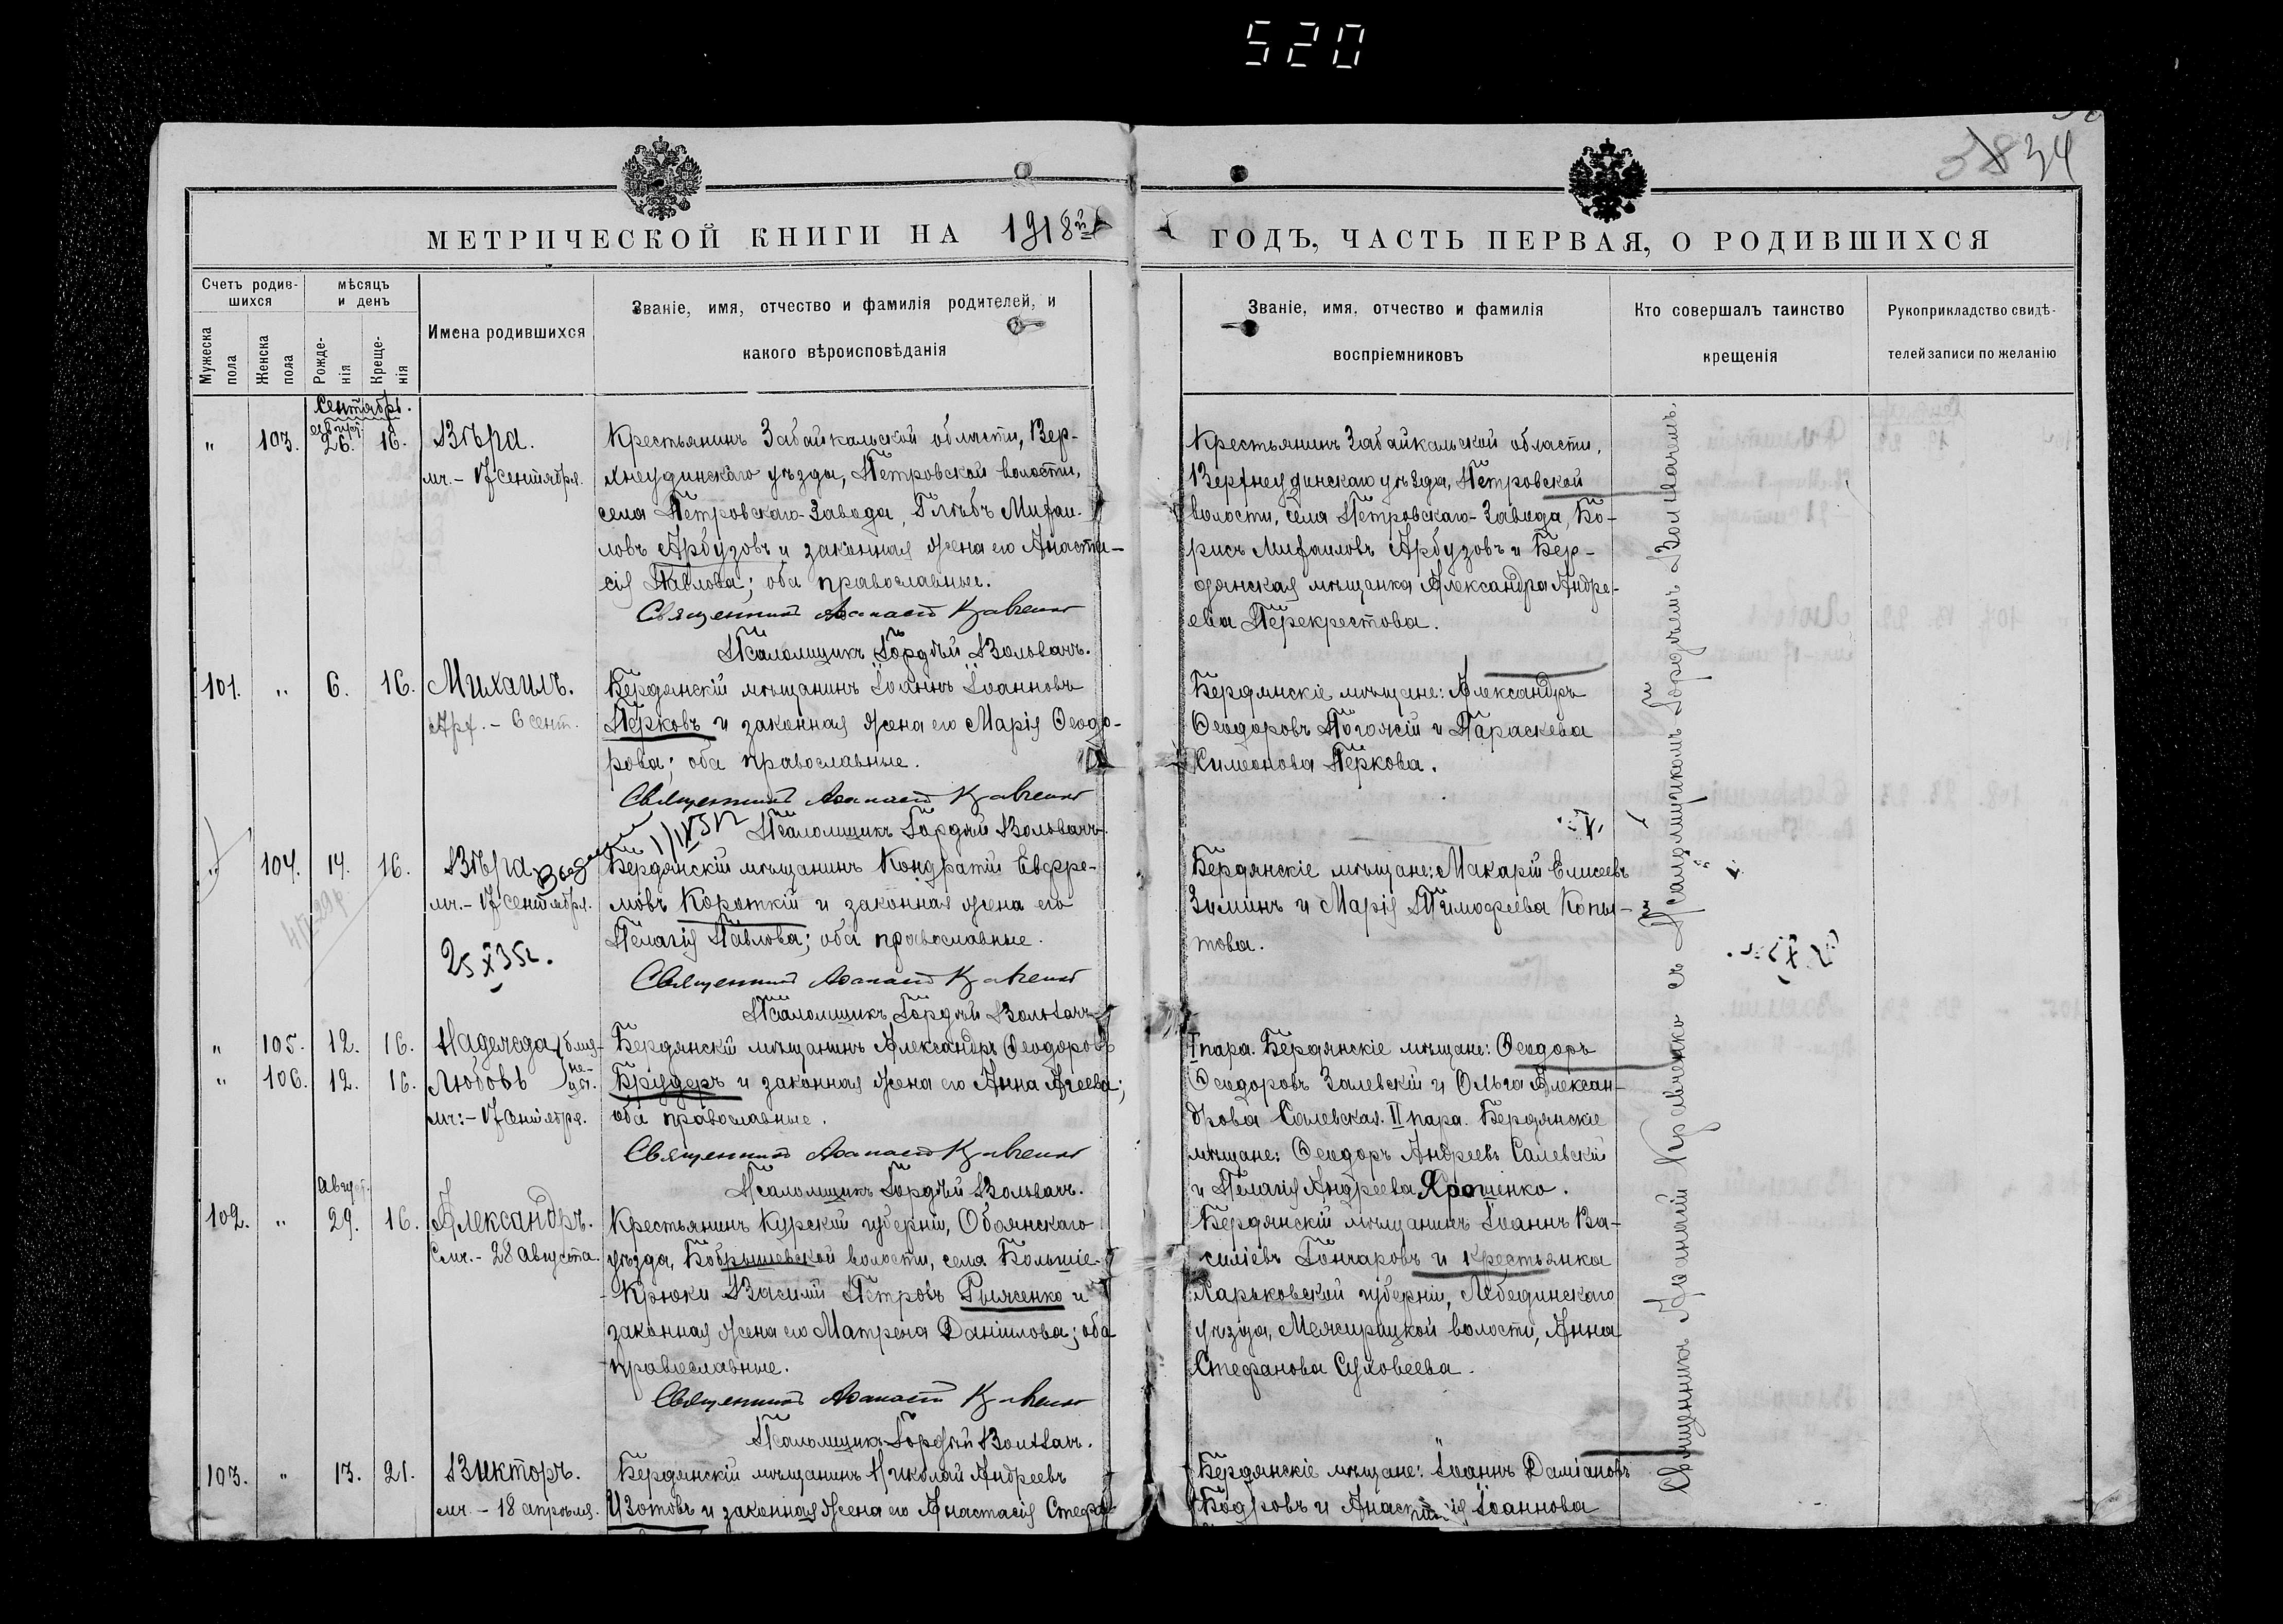 520
3834
МЕТРИЧЕСКОЙ КНИГИ НА 1918й
ГОДЪ, ЧАСТЬ ПЕРВАЯ, О РОДИВШИХСЯ
Счетъ родив-
шихся
Мужеска пола
Женска пола
мѣсяцъ
и день
Рожде-
нія
Креще-
нія
Имена родившихся
Званіе, имя, отчество и фамилія родителей, и
какого вѣроисповѣданія
Званіе, имя, отчество и фамилія
воспріемниковъ
Кто совершалъ таинство
крещенія
Рукоприкладство свидѣ-
телей записи по желанію
Сентябрь.
" 103. 26. 16. Вѣра.
мч. - 17 сентября.
Крестьянинъ Забайкальской области, Вер-
хнеудинскаго уѣзда, Петровской волости,
села Петровскаго-Завода, Глѣбъ Михаи-
ловъ Арбузовъ и законная жена его Анаста-
сія Павлова; оба православные.
Священникъ Аѳанасій Кравченко
Псаломщикъ Гордѣй Воливачъ.
Крестьянинъ Забайкальской области,
Верхнеудинскаго уѣзда, Петровской
волости, села Петровскаго-Завода, Бо-
рисъ Михаиловъ Арбузовъ и Бер-
дянская мѣщанка Александра Андре-
ева Перекрестова.
101. " 6. 16. Михаилъ.
Арх. - 6 сент.
Бердянскій мѣщанинъ Іоаннъ Іоанновъ
Перковъ и законная жена его Марія Ѳеодо-
рова; оба православные.
Священникъ Аѳанасій Кравченко
Псаломщикъ Гордѣй Воливачъ.
Бердянскіе мѣщане: Александръ
Ѳеодоровъ Погожій и Параскева
Симеонова Перкова.
" 104. 14. 16. Вѣра
мч. - 17 сентября.
25 X 35г.
Бердянскій мѣщанинъ Кондратій Евфре-
мовъ Короткій и законная жена его
Пелагія Павлова; оба православные.
Священникъ Аѳанасій Кравченко
Псаломщикъ Гордѣй Воливачъ
Бердянскіе мѣщане: Макарій Елисеевъ
Зиминъ и Марія Тимофеева Копы-
това.
" 105. 12. 16. Надежда близ-
" 106. 12. 16. Любовь не-
цы.
мч: - 17 сентября.
Бердянскій мѣщанинъ Александръ Ѳеодоровъ
Бридеръ и законная жена его Анна Агеева;
оба православные.
Священникъ Аѳанасій Кравченко
Псаломщикъ Гордѣй Воливачъ.
I пара. Бердянскіе мѣщане: Ѳеодоръ
Ѳеодоровъ Залевскій и Ольга Алексан-
дрова Салевская. II пара. Бердянскіе
мѣщане: Ѳеодоръ Андреевъ Салевскій
и Пелагія Андреева Ярошенко.
Август.
102. " 29. 16. Александръ.
Смч. - 28 августа.
Крестьянинъ Курской губерніи, Обоянскаго
уѣзда, Бобрышевской волости, села Большіе-
Крюки Василій Петровъ Рыженко и
законная жена его Матрена Даніилова; оба
православные.
Священникъ Аѳанасій Кравченко
Псаломщикъ Гордѣй Воливачъ.
Бердянскій мѣщанинъ Іоаннъ Ва-
силіевъ Гончаровъ и крестьянка
Харьковской губерніи, Лебединскаго
уѣзда, Межирицкой волости, Анна
Стефанова Суховеева.
103. " 13. 21. Викторъ.
мч. - 18 апрѣля.
Бердянскій мѣщанинъ Николай Андреевъ
Изотовъ и законная жена его Анастасія Стефа-
Бердянскіе мѣщане: Іоаннъ Даміановъ
Бодровъ и Анастасія Іоаннова
Священникъ Аѳанасій Кравченко съ Псаломщикомъ Гордѣемъ Воливачемъ.